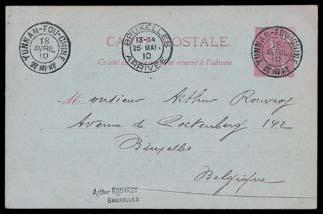 YUNNAN-FOU-CHINE
18
AVRIL
10
CARTE POSTALE.
Ce côté est exclusivement réservé à l'adresse
BRUXELLES
13-14
25 MAI
10
ARRIVÉE
YUNNAN-FOU-CHINE
18
AVRIL
10
Monsieur Arthur Rouvroy
Avenue de Cortenberg 142
Bruxelles
Belgique
Arthur ROUVROY
BRUXELLES